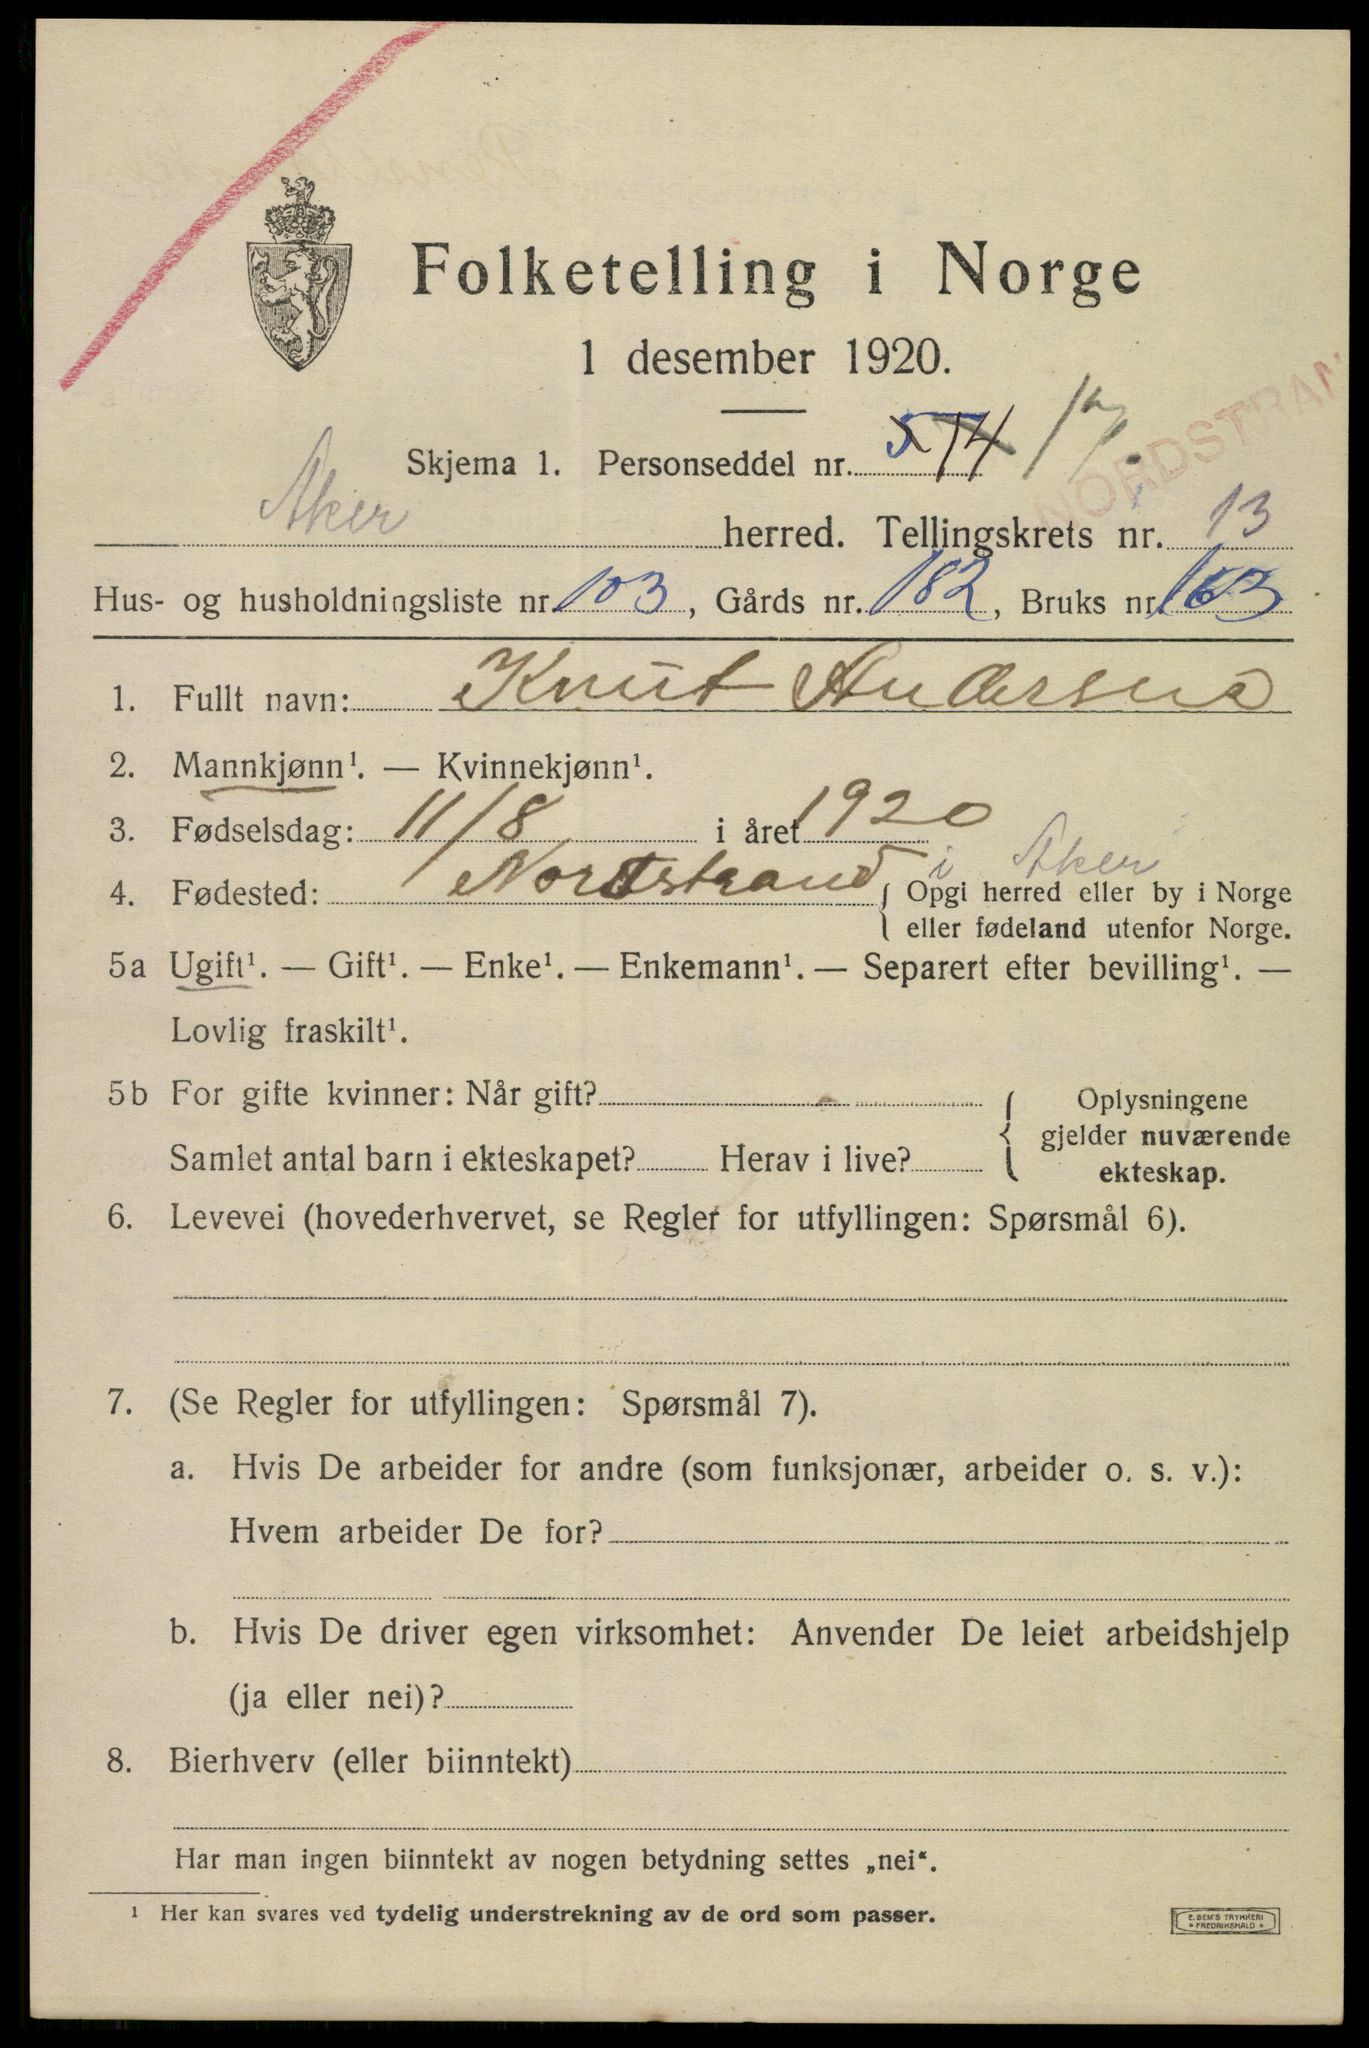 Folketelling i Norge
1 desember 1920.
Skjema 1. Personseddel nr. 574 17.
NORDSTRAN
Aker herred. Tellingskrets nr. 13
Hus- og husholdningsliste nr. 103, Gårds nr. 182, Bruks nr. 163
1. Fullt navn: Knut Andersen
2. Mannkjønn¹. — Kvinnekjønn¹.
3. Fødselsdag: 11/8 i året 1920
4. Fødested: Nordstrand i Aker
Opgi herred eller by i Norge
eller fødeland utenfor Norge.
5a Ugift¹. — Gift¹. — Enke¹. — Enkemann¹. — Separert efter bevilling¹. —
Lovlig fraskilt¹.
5b For gifte kvinner: Når gift?
Samlet antal barn i ekteskapet? Herav i live?
Oplysningene
gjelder nuværende
ekteskap.
6. Levevei (hovederhvervet, se Regler for utfyllingen: Spørsmål 6).
7. (Se Regler for utfyllingen: Spørsmål 7).
a. Hvis De arbeider for andre (som funksjonær, arbeider o. s. v.):
Hvem arbeider De for?
b. Hvis De driver egen virksomhet: Anvender De leiet arbeidshjelp
(ja eller nei)?
8. Bierhverv (eller biinntekt)
Har man ingen biinntekt av nogen betydning settes „nei“.
¹ Her kan svares ved tydelig understrekning av de ord som passer.
E. SEM'S TRYKKERI
FREDRIKSHALD